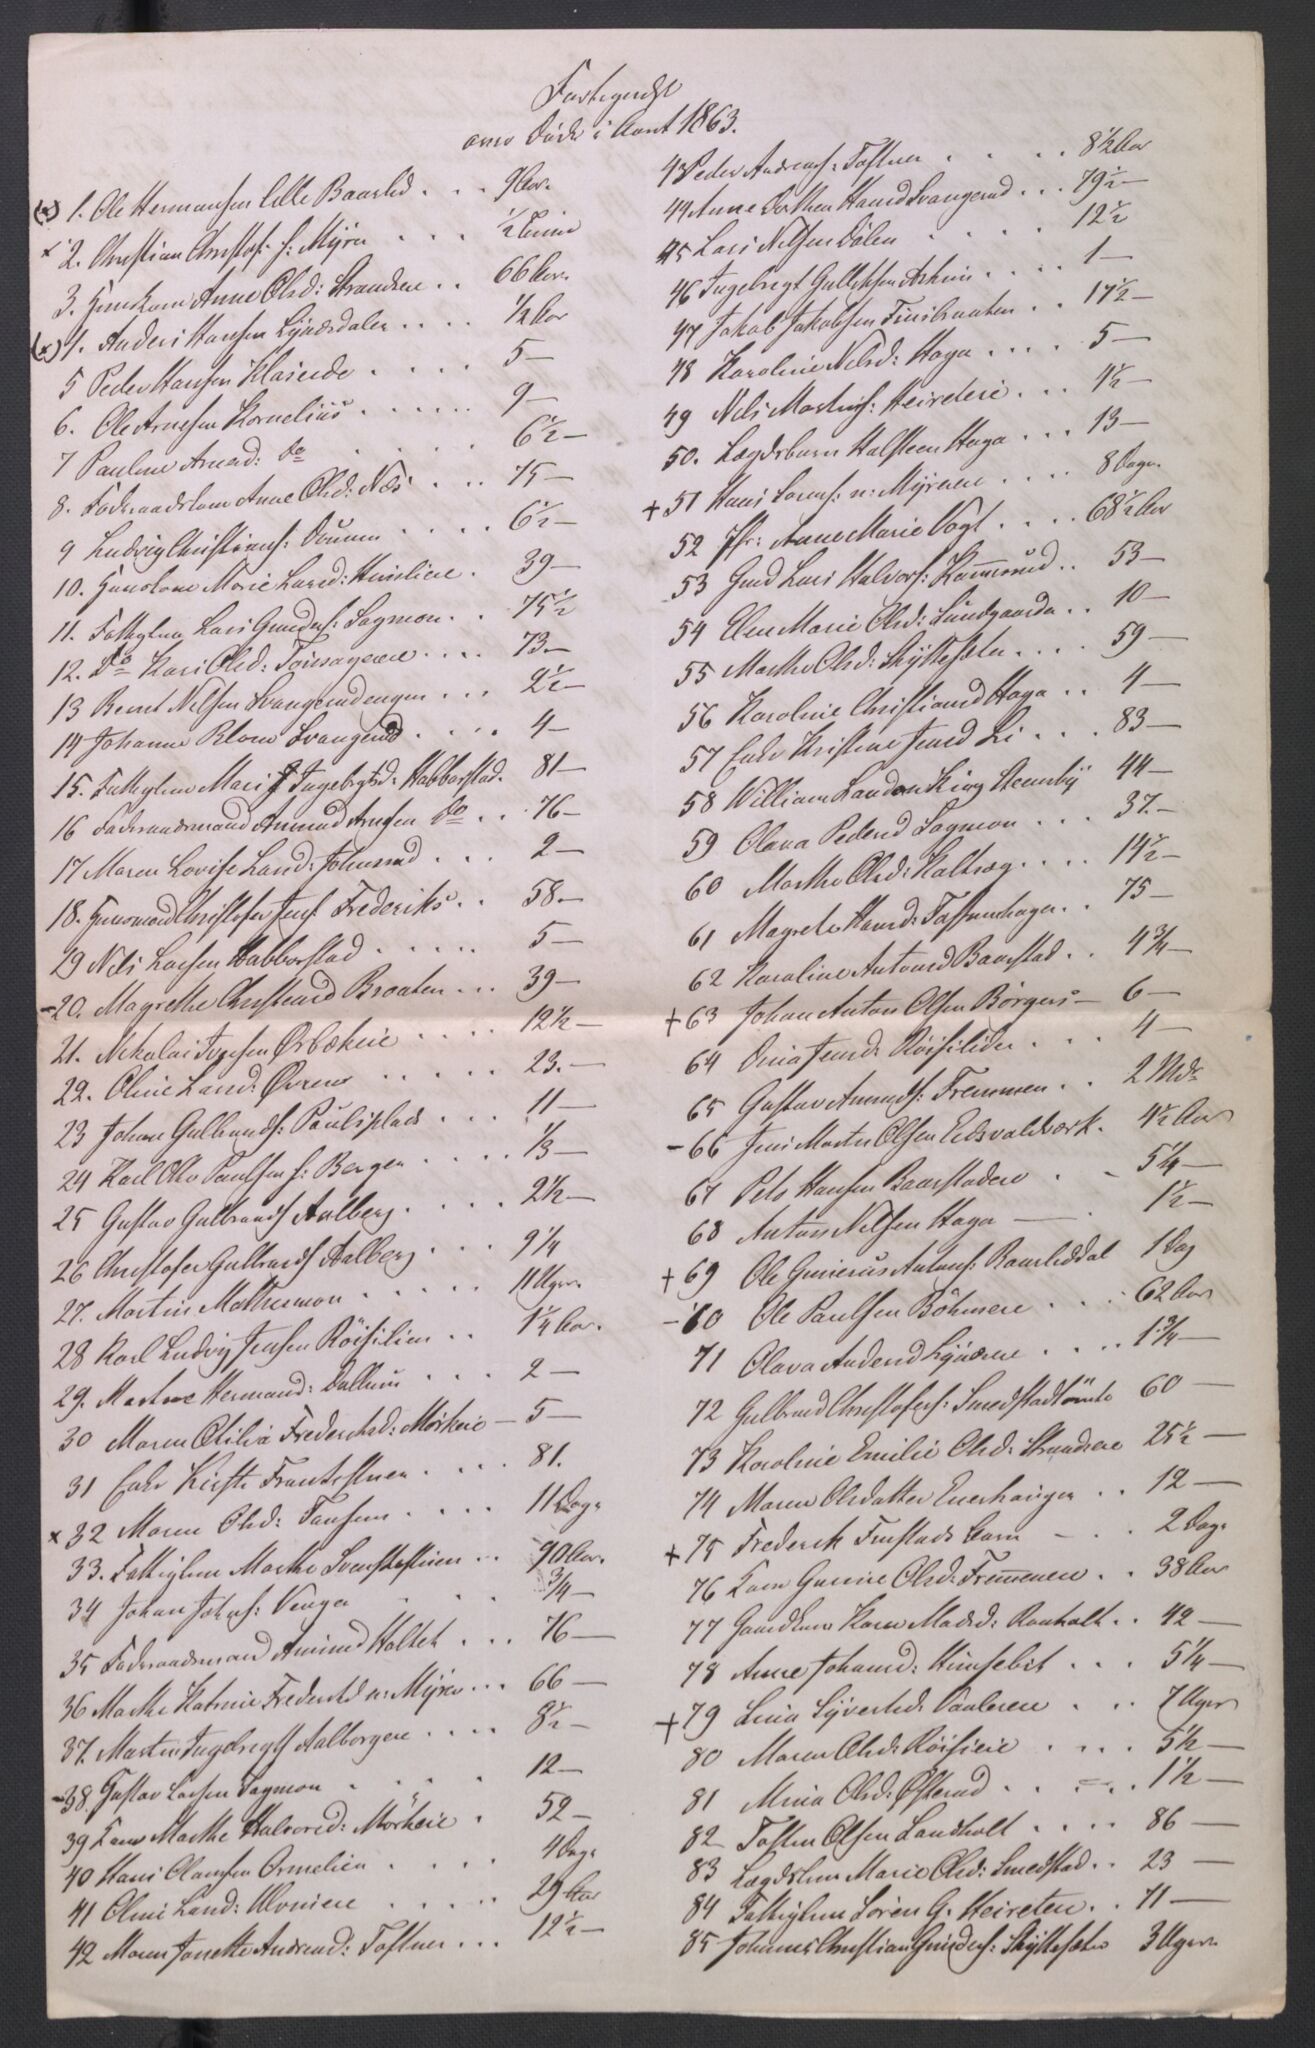 Fortegnelse
over Døde i Aaret 1863.
(x) 1. Ole Hermansen Lille Baarlid . . . 9 Aar.
x 2. Christian Christof: s: Myra . . . . ½ Time
3. Huuskone Anne Olsd: Strandsere . . 66 Aar.
(x) 4. Anders Hansen Lynæsdalen . . . . ½ Aar
5 Peder Hansen . . . . 5 —
6. Ole Arnesen Kornelius . . . . . . 9 —
7 Pauline Arnesd: do . . . . . 6½ —
8. Føderaadskone Anne Olsd: Næs . . . 75 —
9 Ludvig Christians: . . . . . 6½ —
10. Huuskone Marie Larsd: . 39 —
11. Fattiglem Lars Gunders: Sagmoen . . 75½
12. Do Kari Olsd: . . . . 73 —
13 Bernt Nilsen Svangerudengen . . . 2½ —
14 Johanne Svangerud . . . . 4 —
15. Fattiglem Mari Ingebrigtsd: Habberstad. 81 —
16 Føderaadsmand Amund Arnesen do . . 76 —
17 Maren Lovise Larsd: Johnsrud . . . 2 —
18. Huusmand Christofer Jens: Frederiks . . 58. —
19 Nils Larsen Habberstad . . . . . 5 —
- 20. Magrethe Christensd Braaten . . . 39 —
21. Nikolai Jensen Ørbækeie . . . . 12½ —
22. Oline Larsd: Øvren . . . . . 23. —
23 Johan Gulbrands: Paulsplads . . . 11 —
24 Karl Otto Paulsen s: Bergen . . . . ⅓ —
25 Gustav Gulbrands Aalberg . . . . 2½ —
26 Christofer Gulbrands Aalberg . . . 9¼
27. Martin Mathismoen . . . . . 11 Uger.
28 Karl Ludvig Jensen Røisilien . . 1¼ Aar.
29. Marthe Hermansd: Dallien . . . . 2 —
30 Maren Otilia Frederiksd: Mørkeie — 5 —
31 Enke Kirsti Frantsstuen . . . . 81.
x 32 Maren Olsd: . . . . 11 Dage
33. Fattiglem Marthe Svenskestuen . . 90 Aar.
34 Johan Johns: . . . ¾ —
35 Føderaadsmand Amund Holtet . . . 76 —
36 Marthe Katrine Frederiksd n: Myren . . . 66 —
37. Martin Ingebrigts Aalborgen . . . . 8½ —
- 38. Gustav Larsen Sagmoen . . . . 12 —
39 Kone Marthe Halvorsd: Mørkeie . 52 —
40 Hans Olaussen Ormelien . . . . 4 Dage
41 Oline Larsd: . . . . . 29 Aar
42 Maren Janette Andreasd: Toftner . . . 12½ —
43 Peder Andreas: Toftner . . . . 8½ Aar
44 Anne Dorthea Hansd Svangerud . . . 79½ —
45 Lars Nilsen Dølen . . . . . 12½
46 Ingebrigt Gulliksen . . . . 1 —
47 Jakob Jakobsen Finsbraaten . . 17½ —
48 Karoline Nilsd: Haga . . . . 5 —
49 Nils Martins: . . . 4½ —
50. Lægdsbarn Halsteen Haga . . . 13 —
+ 51 Hans Larens: n: Myrene . . . 8 Dage.
52 Jfr: Anne Marie Vogt . . . . 68½ Aar
53 Gmd Lars Halvors: Kammerud . . 53 —
54 Elen Marie Olsd: Lundgaarda . . 10 —
55 Marthe Olsd: Skyttesæter . . . . 59 —
56 Karoline Christiansd Haga . . 4 —
57 Enke Kristine Jensd Li . . . . 83 —
58 William Landon King Hemsby 44 —
59 Olava Pedersd Sagmoen . . . 37. —
60 Marthe Olsd: . . . . 14½ —
61 Magrete Hansd: . . 75 —
62 Karoline Antonsd Baarstad . . 4¾ —
+ 63 Johan Anton Olsen Børgers — 6 —
64 Jensd: Røisilien . . . . 4 —
65 Gustav Amunds: Fremmen . . 2 Mdr
- 66 Jens Martin Olsen Eidsvoldværk . 4½ Aar
67 Hansen Baarstadere . - 5¼ —
68 Anton Nilsen Haga — . 1½ —
+ 69 Ole Antons: Baarliddal 1 Dag
- 70 Ole Paulsen Bøhmere . . . 62 Aar
71 Olava Andersd Lynæsere . . . . 1¾ —
72 Gulbrand Christofers: Smedstadtomte 60 —
73 Karoline Emilie Olsd: Strandsere 25½ —
74 Maren Olsdatter . . 12 —
+ 75 Frederik Finstads barn — . . 2 Dage
76 Kone Gunine Olsd: Fremmen . . 38 Aar
77 Gaardkone Karen Madsd: Raaholt . . 42 —
78 Anne Johansd: . . . 5¼ —
+ 79 Lina Syversd: . . . 7 Uger
80 Maren Olsd: Røisieie . . . . 5½ —
81 Mina Olsd: Østerud . . . . . 1½ —
82 Josten Olsen Landholt . . . . 86 —
83 Lægdslem Marie Olsd: Smedstad . . 23 —
84 Fattiglem Søren G. Heireten . . 71 —
85 Johannes Christian Gunders: Skyttesæter 3 Uger